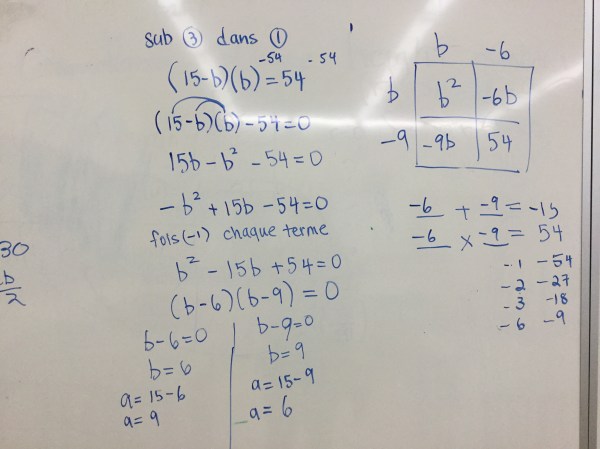 sub ③ dans ①
-54 -54
(15-b)(b)=54
(15-b)(b)-54=0
15b-b²-54=0
-b²+15b-54=0
fois(-1) chaque terme
b²-15b+54=0
(b-6)(b-9)=0
b-6=0
b=6
a=15-6
a=9
b-9=0
b=9
a=15-9
a=6
b -6
b b² -6b
-9 -9b 54
-6 + -9 = -15
-6 x -9 = 54
-1 -54
-2 -27
-3 -18
-6 -9
30
b
2